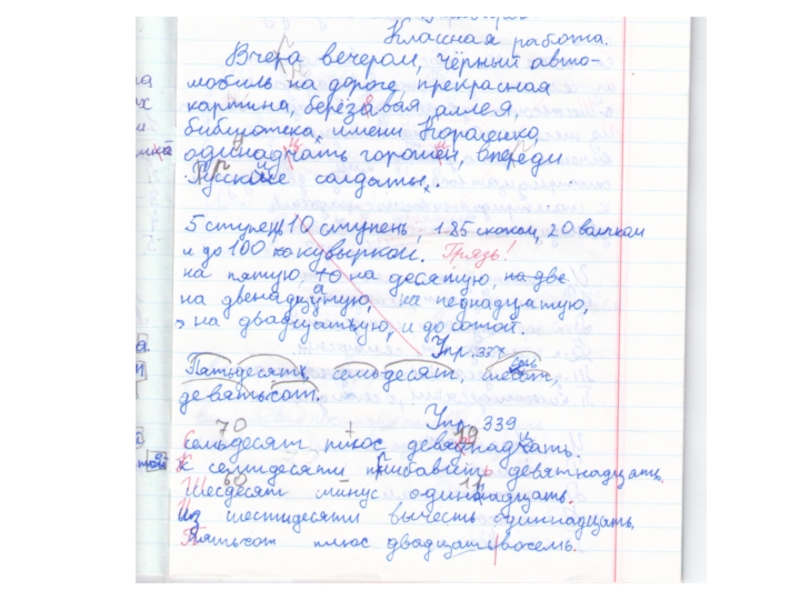 Классная работа.
Вчера вечером, чёрный авто-
мобиль на дороге, прекрасная
картина, берёзавая аллея,
библиотека имени Короленко,
одиннадцать горошен, впереди
Русские солдаты.
5 ступень, 10 ступень, 185 скоком, 20 валиком
и до 100 кувырком. Грязь!
на пятую, 10 на десятую, на две
на двенадцатую, на педнадцатую,
на двадцатую, и до сотой.
Упр. 337
Пятьдесят, семьдесят,
девятьсот.
Упр. 339
70 + 19
Семьдесят плюс девятнадцать.
К семидесяти прибавить девятнадцать.
60 − 11
Шесдесят минус одиннадцать.
Из шестидесяти вычесть одиннадцать.
Пятьсот плюс двадцать восемь.